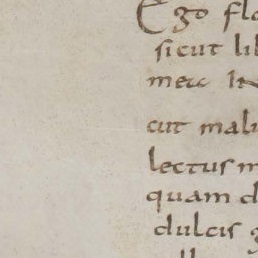 Ego flo
sicut lil
mea In
cut malu
lectus m
quam d
dulcis g